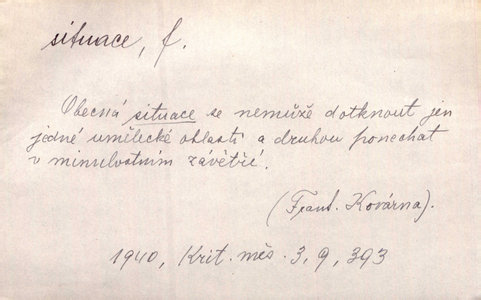 situace, f.
Obecná situace se nemůže dotknout jen
jedné umělecké oblasti a druhou ponechat
v minulostním závětří.
(Frant. Kovárna).
1940, Krit. měs. 3, 9, 393